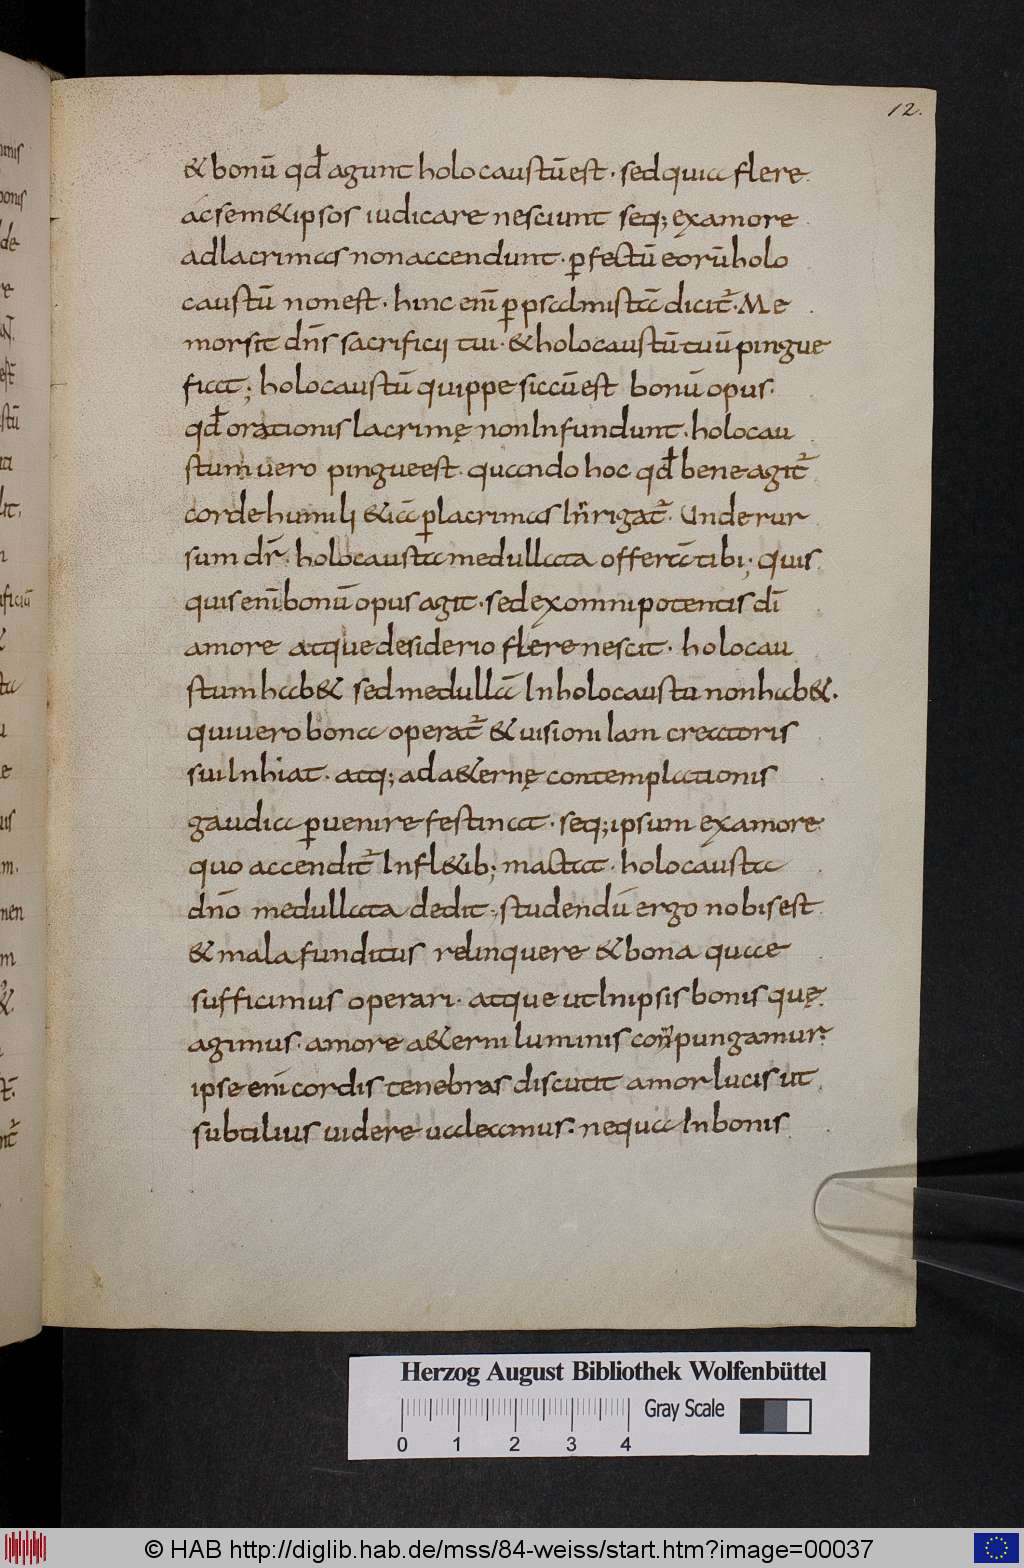 12.
& bonū qđ agunt holocaustū est · sed quia flere
ac sem&ipsos iudicare nesciunt seq; ex amore
ad lacrimas non accendunt · ꝑfectū eorū holo
caustū non est · hinc enī ꝑ psalmistā dicit᷑ · Me
morsit dn̄s sacrificii tui · & holocaustū tuū pingue
fiat ; holocaustū quippe siccū est bonū opus ·
qđ orationis lacrimę non Infundunt · holocau
stum uero pingue est · quando hoc qđ bene agit᷑
corde humili &iā ꝑ lacrimas Inrigat᷑ · Unde rur
sum dr̄ · holocausta medullata offerā tibi ; quis
quis enī bonū opus agit · sed ex omnipotentis dī
amore atque desiderio flere nescit · holocau
stum hab& sed medullā In holocaustū non hab& ·
qui uero bona operat᷑ & uisioni iam creatoris
sui Inhiat · atq; ad a&ernę contemplationis
gaudia ꝑuenire festinat · seq; ipsum ex amore
quo accendit᷑ In fl&ib; mactat · holocausta
dn̄o medullata dedit · studendū ergo nobis est
& mala funditus relinquere & bona quae
sufficimus operari · atque ut In ipsis bonis quę
agimus · amore a&erni luminis conpungamur ·
ipse enī cordis tenebras discutit amor lucis ut
subtilius uidere ualeamus · ne qua In bonis
Herzog August Bibliothek Wolfenbüttel
Gray Scale
0 1 2 3 4
© HAB http://diglib.hab.de/mss/84-weiss/start.htm?image=00037